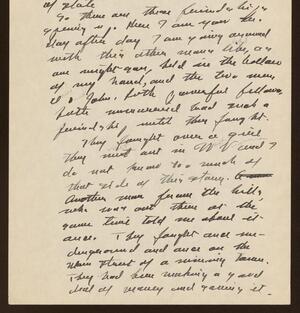 of state
So there are these friendships
Here I am you see.
Day after day I am going around
with this other man's life, as
one might say, held in the hollow
of my hand, and the two men,
it's John. Both powerful fellows
both uncovered had such a
friendship until they fought.
They fought over a girl
They met out in W V and I
do not know too much of
that side of this story.
Another man from the hills
who was out there at the
same time told me about it
once. They fought once un-
derground and once on the
Main Street of a mining town.
They had been making a good
deal of money and saving it.